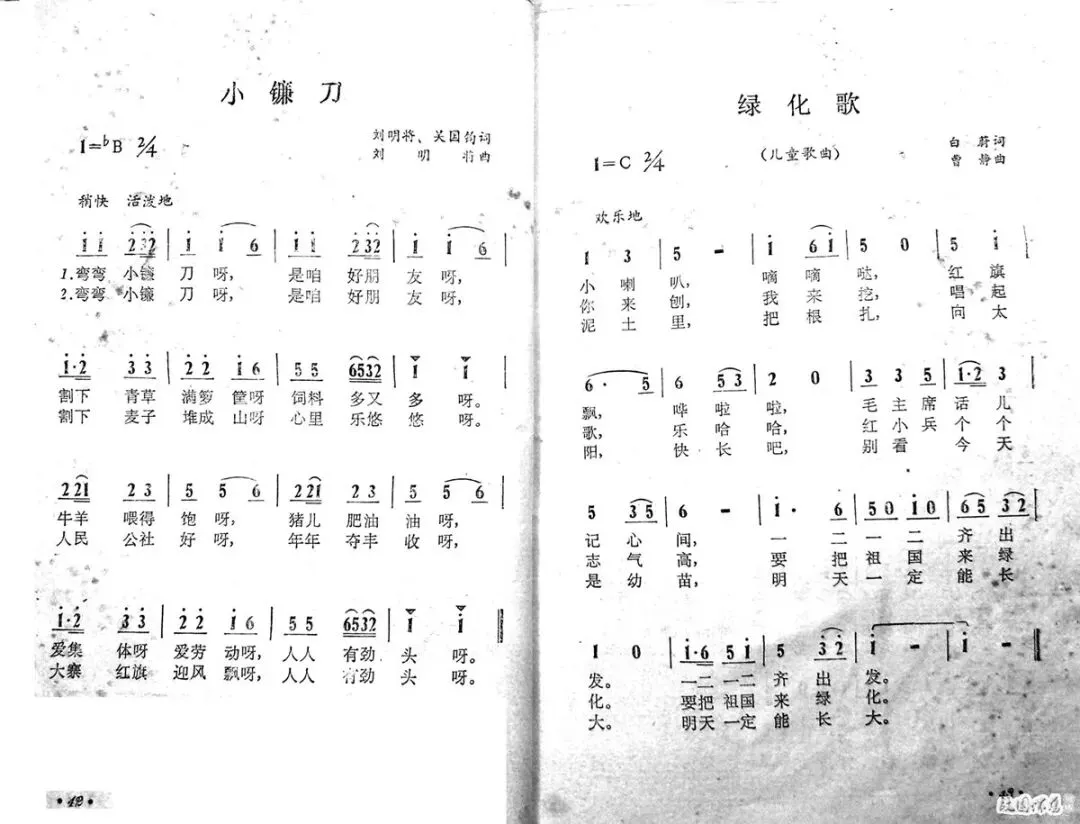 小镰刀
刘明将、吴国钧词
1=♭B 2/4
刘明将曲
稍快 活泼地
i i 2 3 2 | i i 6 | i i 2 3 2 | 2 i 6 |
1.弯弯 小镰 刀 呀, 是咱 好朋 友 呀,
2.弯弯 小镰 刀 呀, 是咱 好朋 友 呀,
i·2 3 3 | 2 2 i 6 | 5 5 6532 | i i |
割下 青草 满箩 筐呀 饲料 多又 多 呀。
割下 麦子 堆成 山呀 心里 乐悠 悠 呀。
2 2 i 2 3 | 5 5 6 | 2 2 i 2 3 | 5 5 6 |
牛羊 喂得 饱 呀, 猪儿 肥油 油 呀,
人民 公社 好 呀, 年年 夺丰 收 呀,
i·2 3 3 | 2 2 i 6 | 5 5 6532 | i i ‖
爱集 体呀 爱劳 动呀, 人人 有劲 头 呀。
大寨 红旗 迎风 飘呀, 人人 有劲 头 呀。
·42·
绿化歌
(儿童歌曲)
白蔚词
1=C 2/4
曹静曲
欢乐地
1 3 | 5 - | i 6 i | 5 0 | 5 i |
小喇 叭, 嘀嘀 哒, 红旗
你来 刨, 我来 挖, 唱起
泥土 里, 把根 扎, 向太
6· 5 | 6 5 3 | 2 0 | 3 3 5 | i·2 3 |
飘, 哗啦 啦, 毛主席 话儿
歌, 乐哈 哈, 红小兵 个个
阳, 快长 吧, 别看 今天
5 3 5 | 6 - | i· 6 | 5 0 i 0 | 6 5 3 2 |
记心 间, 一二 一二 齐出
志气 高, 要把 祖国 来绿
是幼 苗, 明天 一定 能长
1 0 | i·6 5 i | 5 3 2 | i - | i - ‖
发。 一二 一二 齐出 发。
化。 要把 祖国 来绿 化。
大。 明天 一定 能长 大。